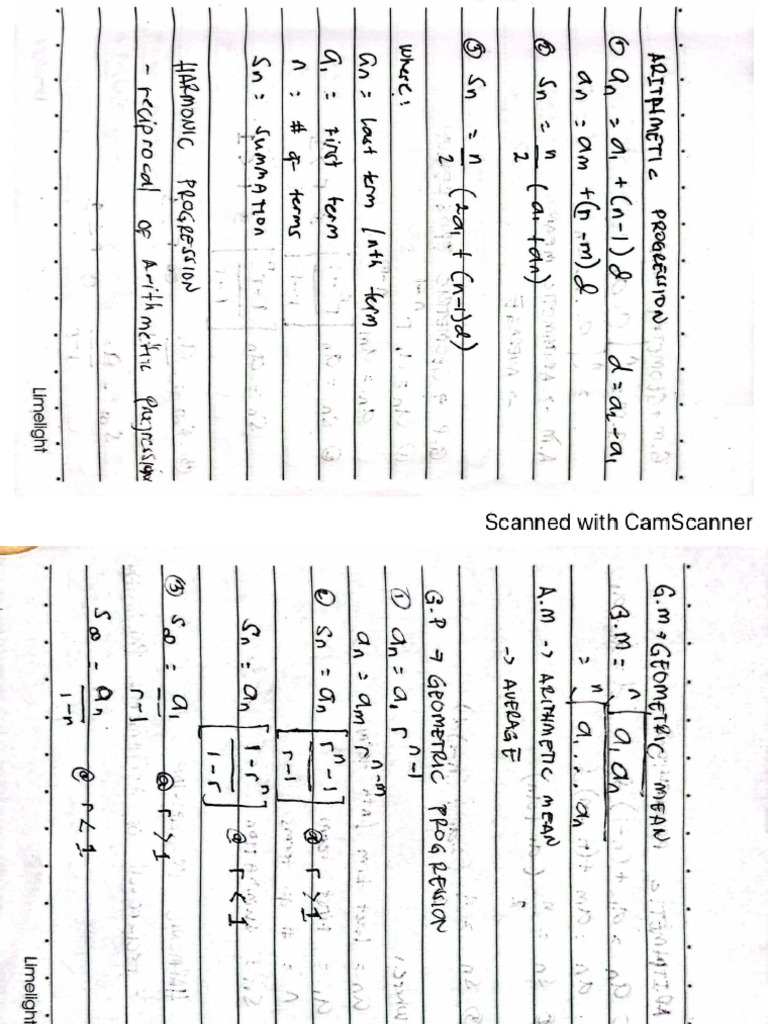 ARITHMETIC PROGRESSION
① an = a1 + (n-1)d    d = a2 - a1
an = am + (n-m)d
② Sn = n/2 (a1 + an)
③ Sn = n/2 (2a1 + (n-1)d)
where:
an = last term / nth term
a1 = first term
n = # of terms
Sn = summation
HARMONIC PROGRESSION
- reciprocal of Arithmetic Progression
Limelight
Scanned with CamScanner
G.M → GEOMETRIC MEAN
G.M = n√a1 an
= n√a1 ... an
A.M → ARITHMETIC MEAN
→ AVERAGE
G.P → GEOMETRIC PROGRESSION
① an = a1 r^n-1
an = am r^n-m
② Sn = an [r^n - 1 / r-1] @ r > 1
Sn = an [1-r^n / 1-r] @ r < 1
③ S∞ = a1 / r-1 @ r > 1
S∞ = an / 1-n @ r < 1
Limelight